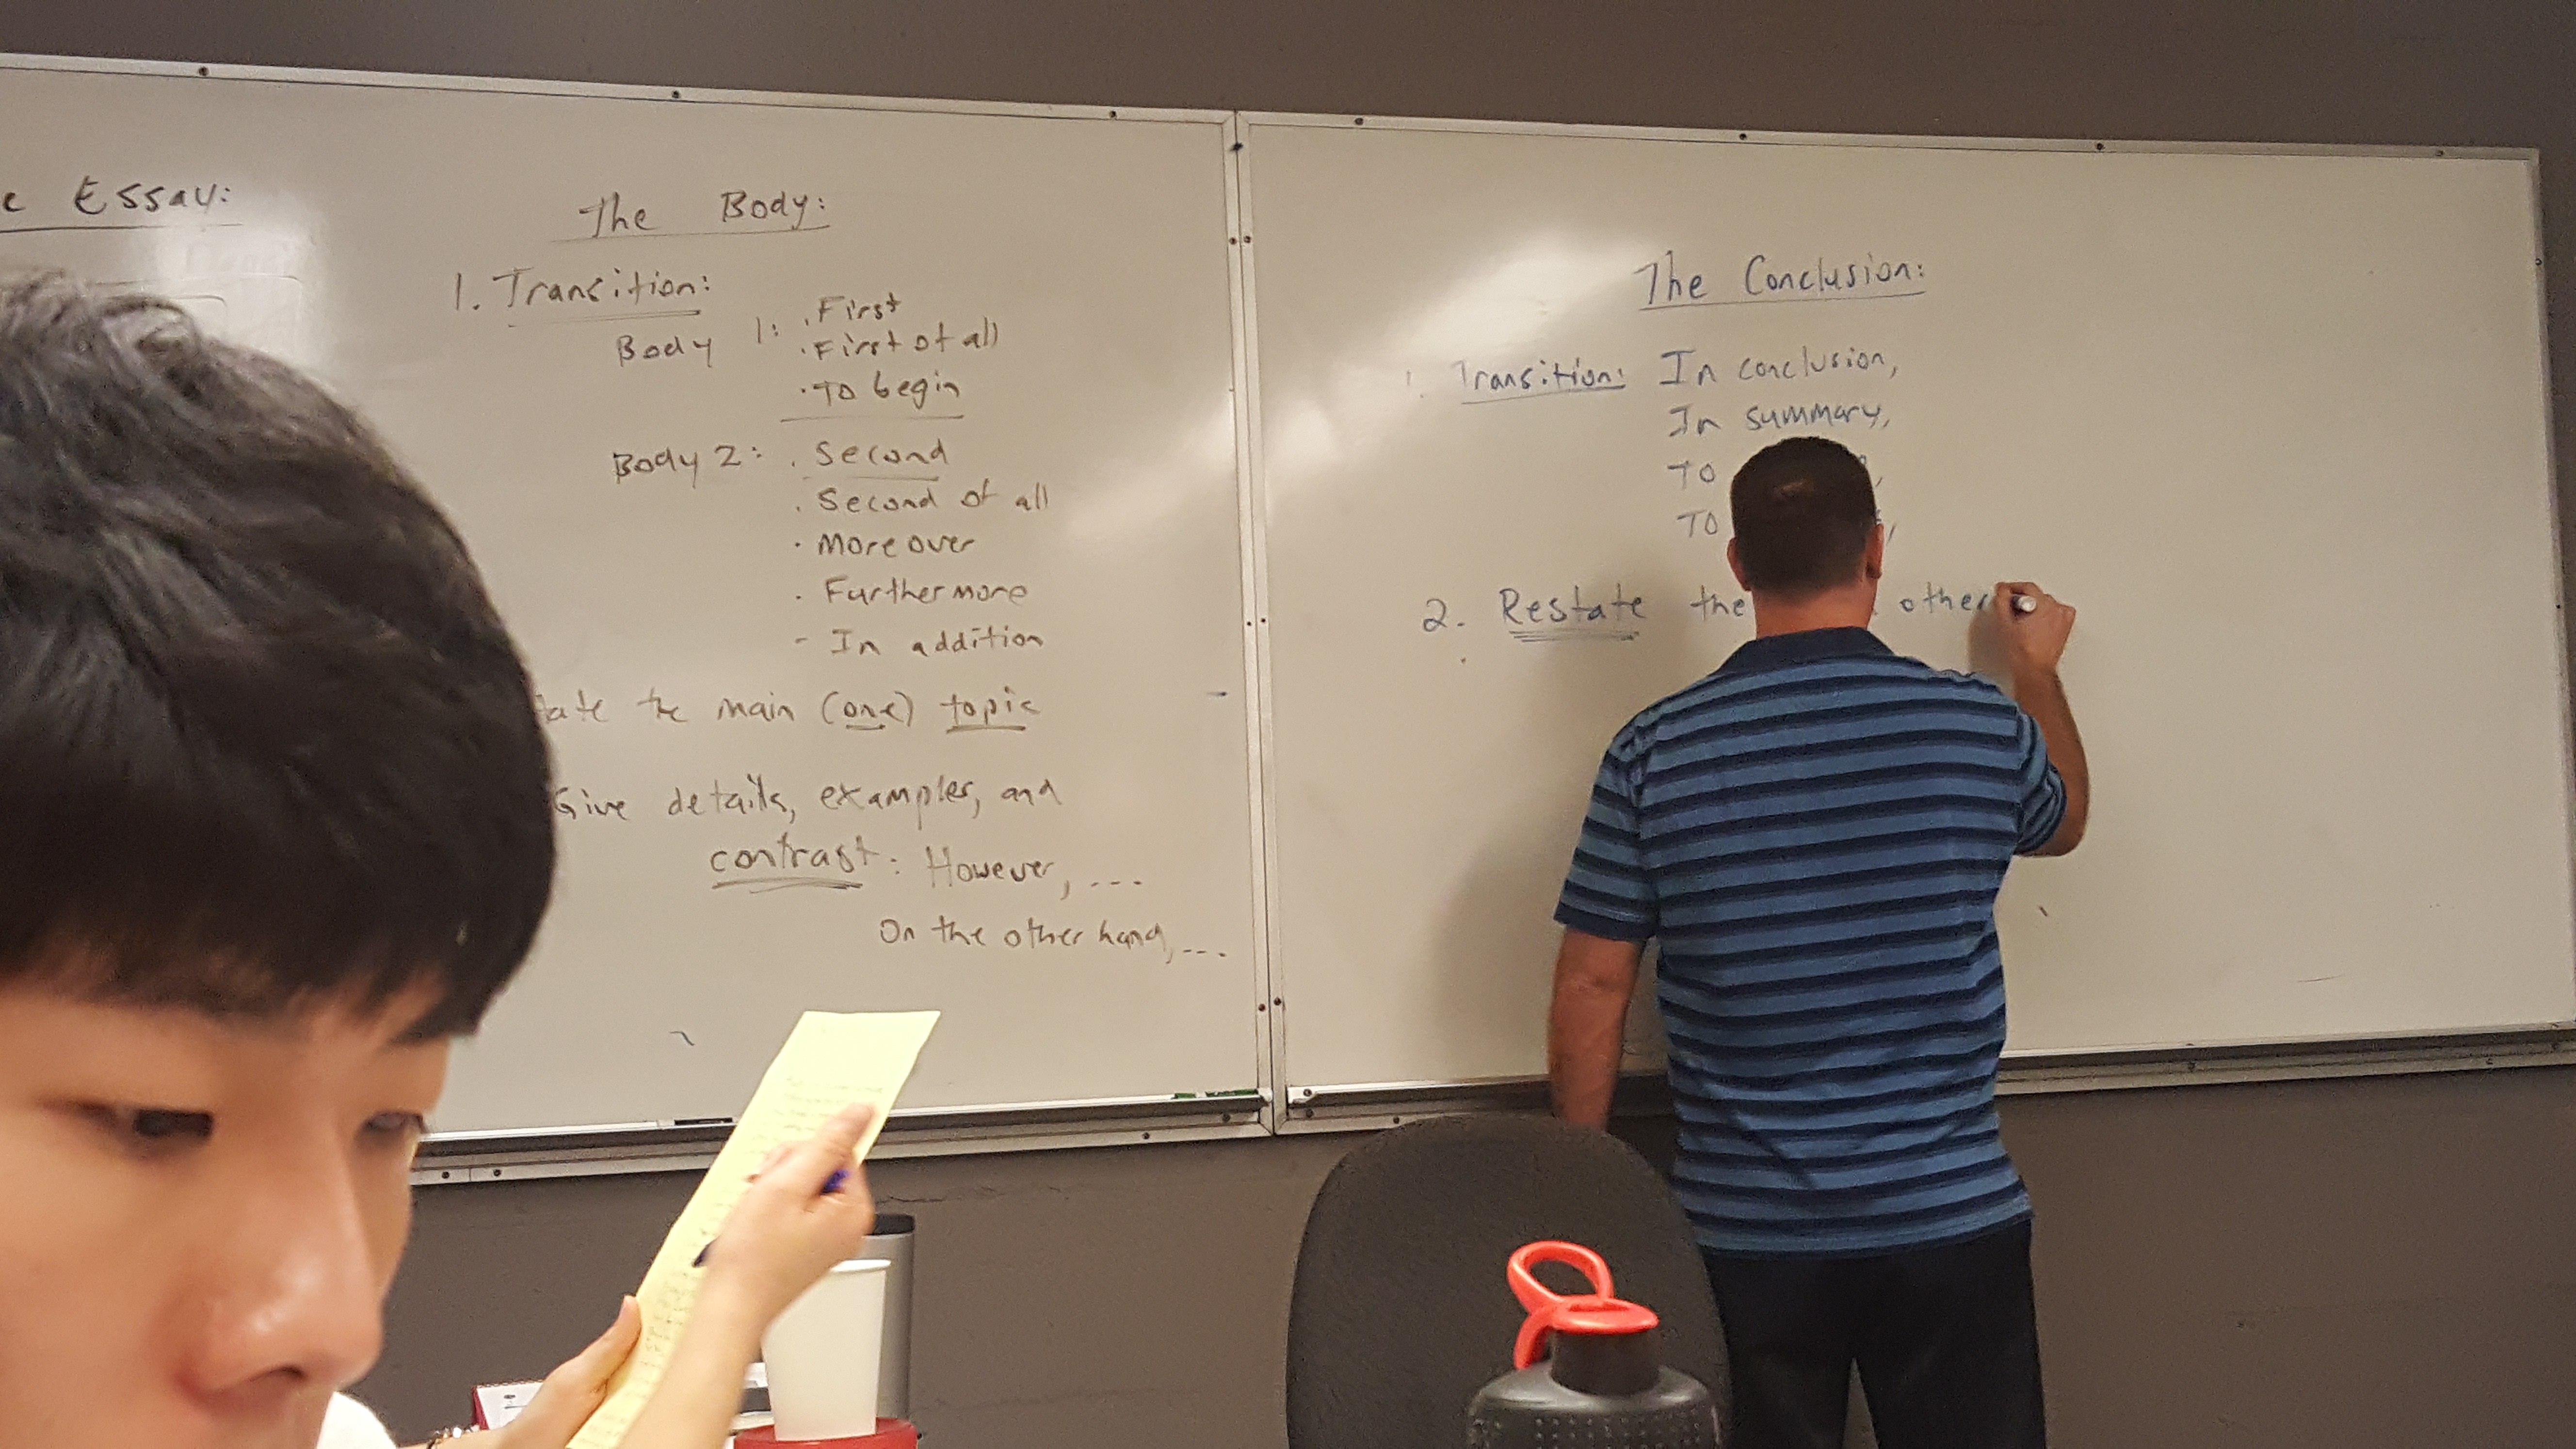 Essay:
The Body:
1. Transition:
Body 1: . First
. First of all
. To begin
Body 2: . Second
. Second of all
. Moreover
. Furthermore
- In addition
tate the main (one) topic
Give details, examples, and
contrast: However, ...
On the other hand, ...
The Conclusion:
1. Transition: In conclusion,
In summary,
To
To
2. Restate the other